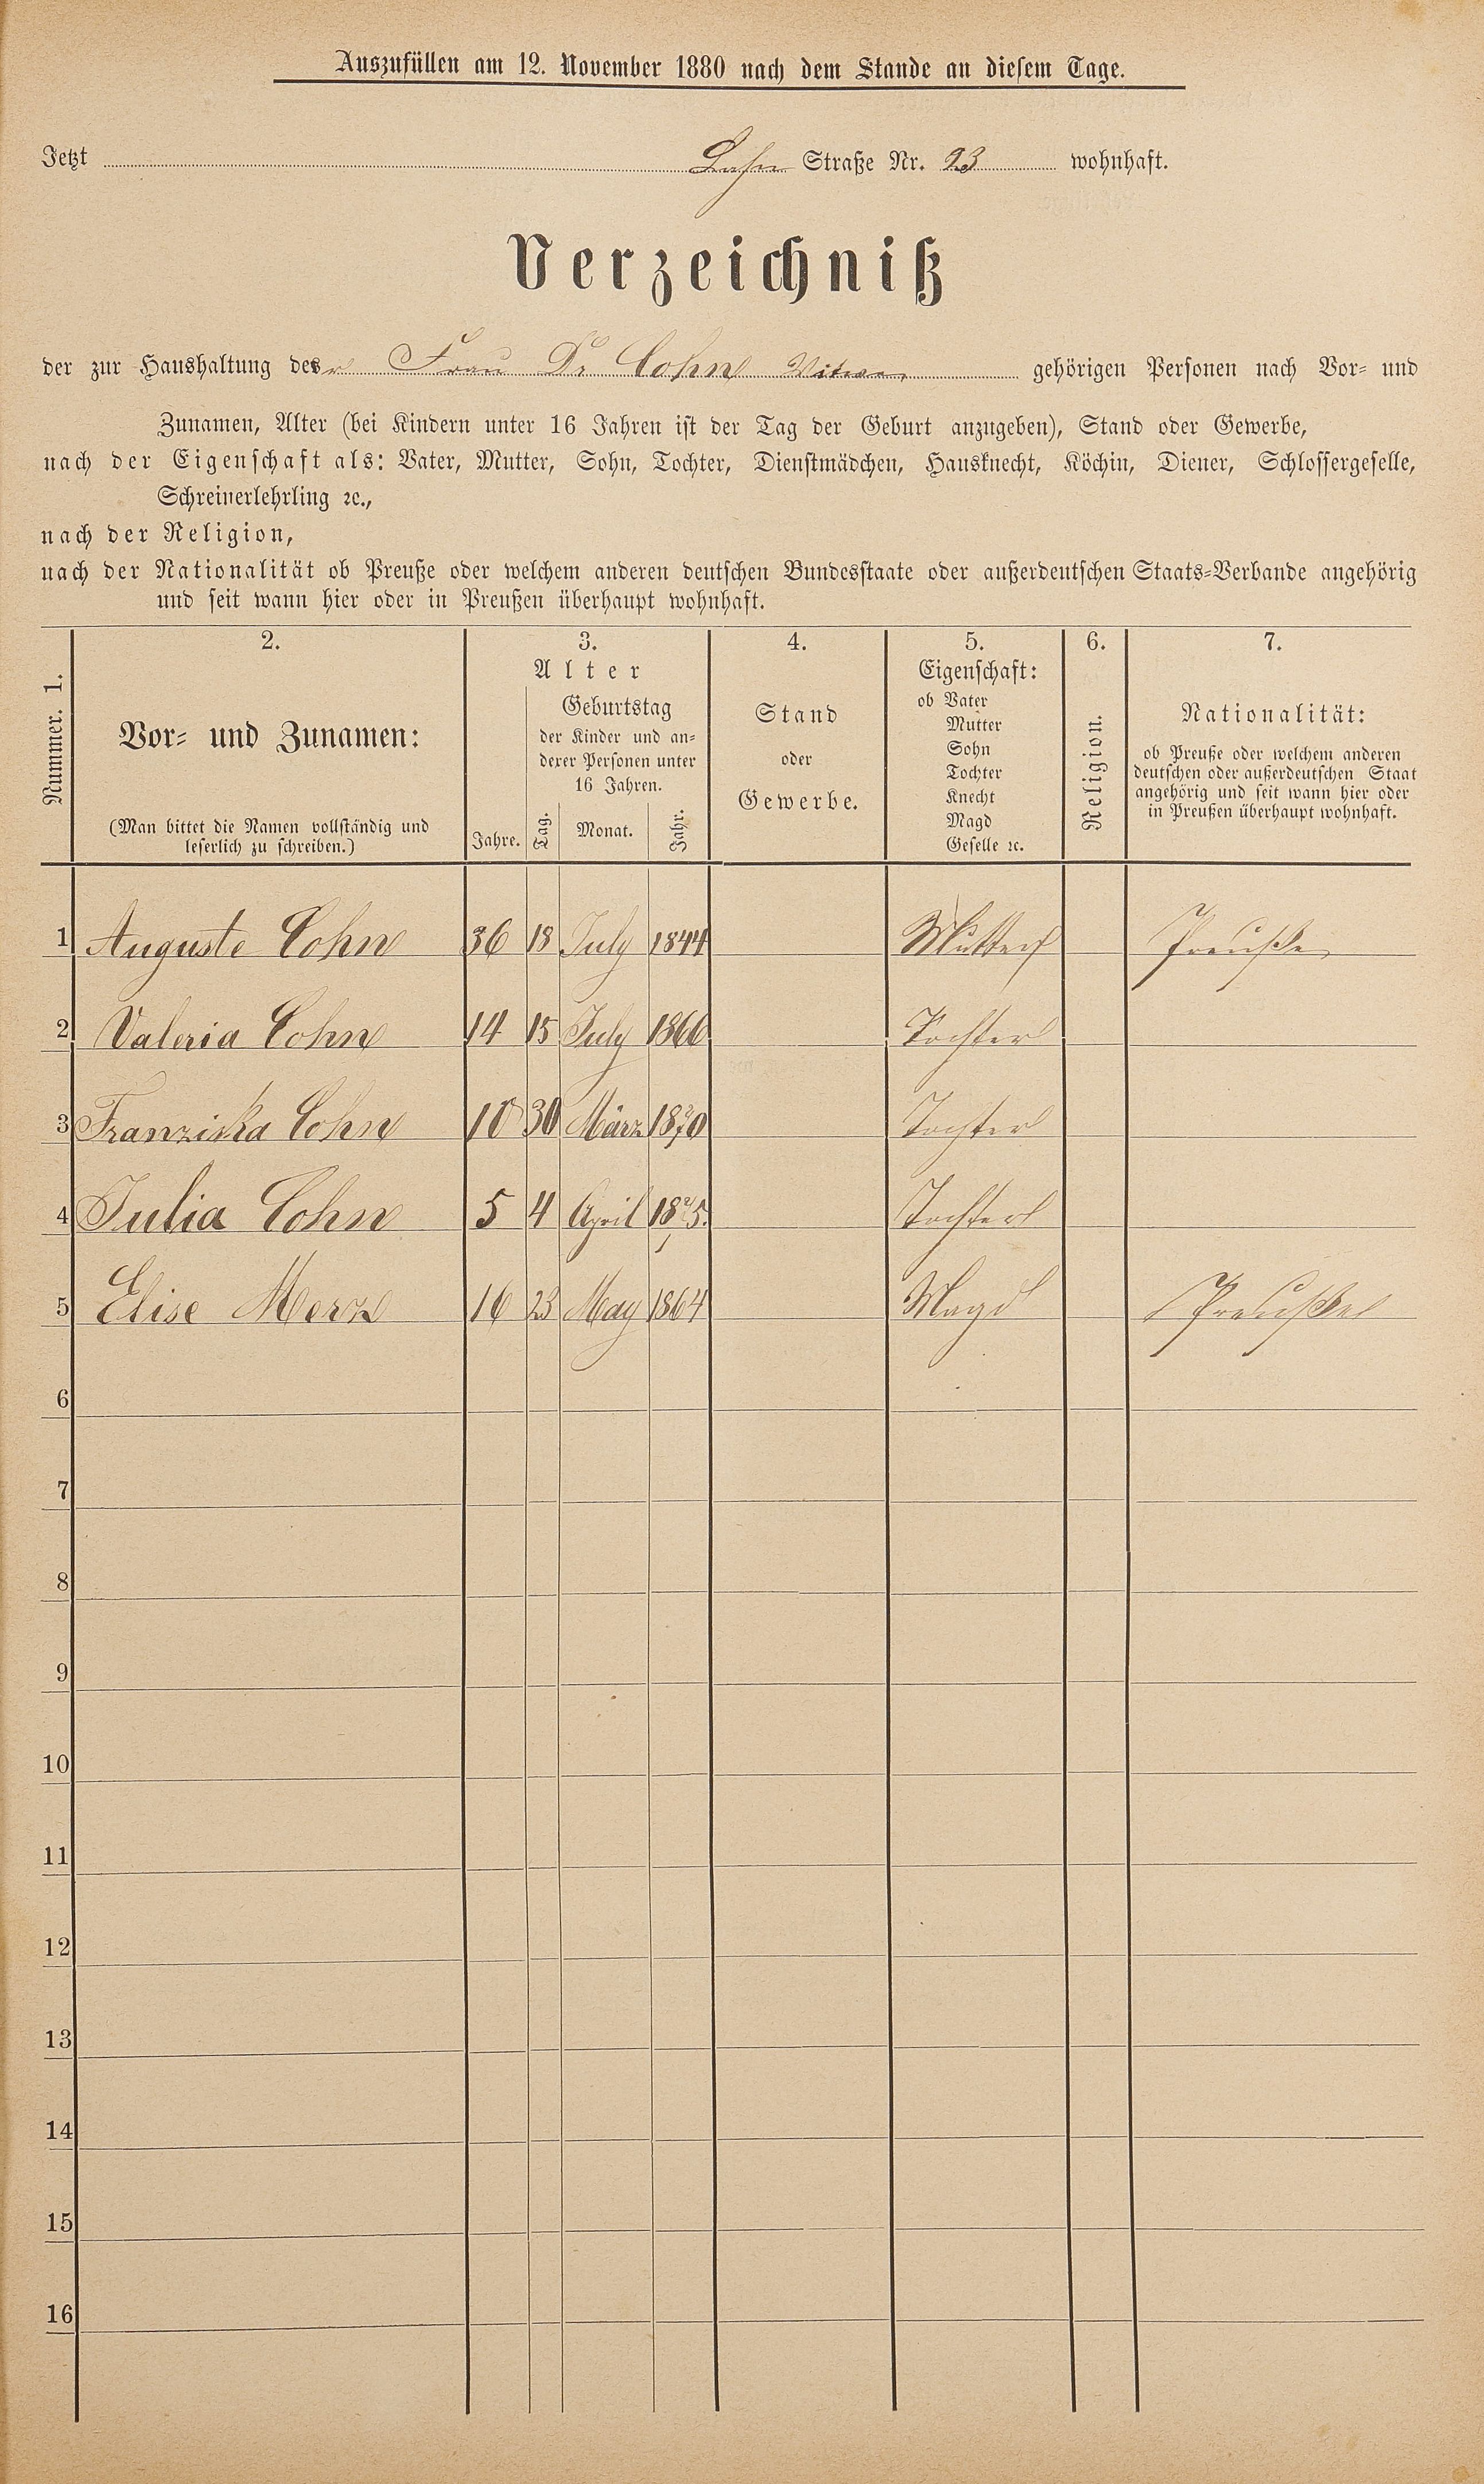 Auszufüllen am 12. November 1880 nach dem Stande an diesem Tage.
Jetzt Lahn Straße Nr. 23 wohnhaft.
Verzeichniß
der zur Haushaltung des r Frau Dr Cohn Witwe gehörigen Personen nach Vor- und
Zunamen, Alter (bei Kindern unter 16 Jahren ist der Tag der Geburt anzugeben), Stand oder Gewerbe,
nach der Eigenschaft als: Vater, Mutter, Sohn, Tochter, Dienstmädchen, Hausknecht, Köchin, Diener, Schlossergeselle,
Schreinerlehrling ꝛc.,
nach der Religion,
nach der Nationalität ob Preuße oder welchem anderen deutschen Bundesstaate oder außerdeutschen Staats-Verbande angehörig
und seit wann hier oder in Preußen überhaupt wohnhaft.
Nummer. 1.
2.
Vor- und Zunamen:
(Man bittet die Namen vollständig und
leserlich zu schreiben.)
3.
Alter
Geburtstag
der Kinder und an-
derer Personen unter
16 Jahren.
Jahre. Tag. Monat. Jahr.
4.
Stand
oder
Gewerbe.
5.
Eigenschaft:
ob Vater
Mutter
Sohn
Tochter
Knecht
Magd
Geselle ꝛc.
6.
Religion.
7.
Nationalität:
ob Preuße oder welchem anderen
deutschen oder außerdeutschen Staat
angehörig und seit wann hier oder
in Preußen überhaupt wohnhaft.
1 Auguste Cohn 36 18 July 1844 Mutter Preuße
2 Valeria Cohn 14 15 July 1866 Tochter
3 Franziska Cohn 10 30 März 1870 Tochter
4 Julia Cohn 5 4 April 1875. Tochter
5 Elise Merz 16 23 May 1864 Magd Preuße
6
7
8
9
10
11
12
13
14
15
16